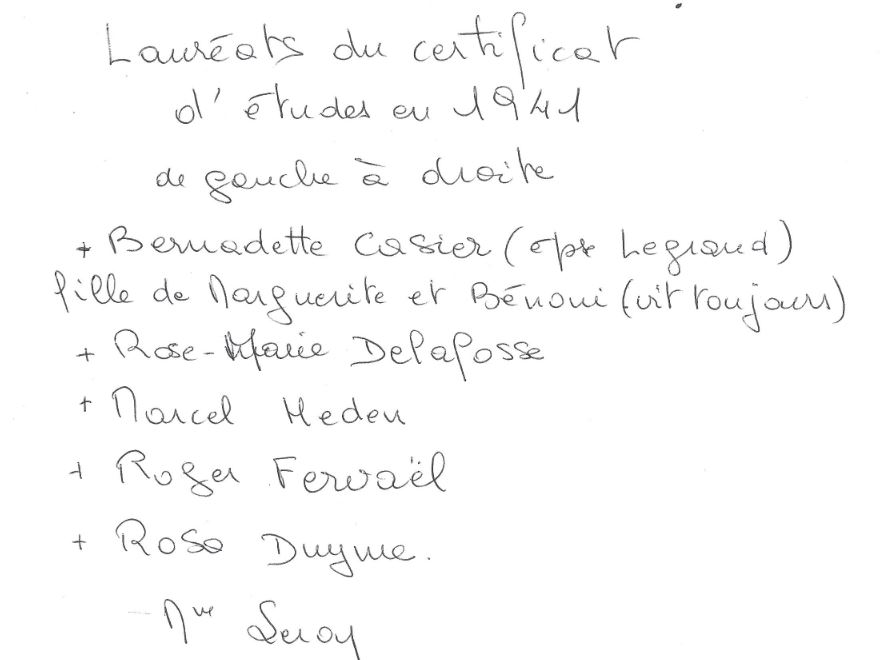 Lauréats du certificat
d'études en 1941
de gauche à droite
+ Bernadette Casier (épse Legrand)
fille de Marguerite et Bénoni (vit toujours)
+ Rose-Marie Delafosse
+ Marcel Heden
+ Roger Fervaël
+ Rosa Duyme.
Mme Leroy